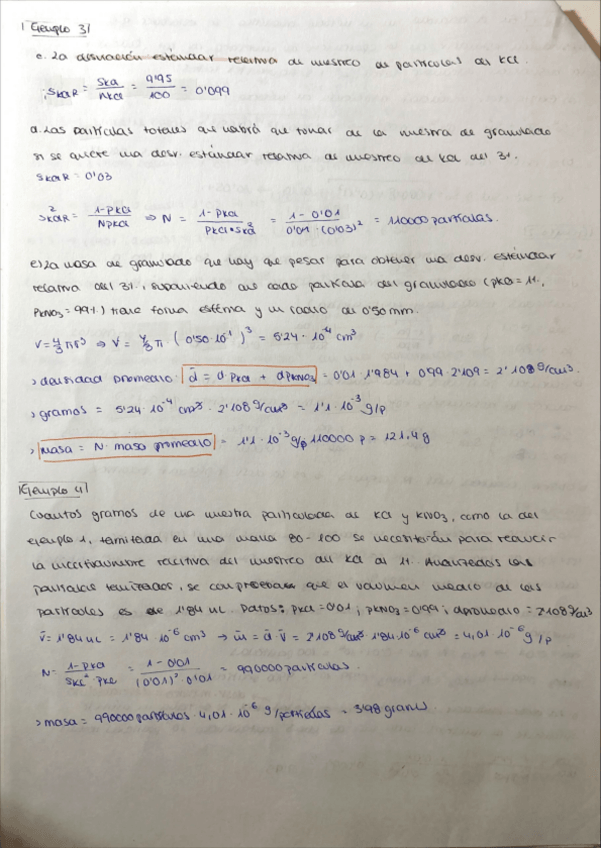 Ejemplo 3
c. La desviación estándar relativa de muestreo de partículas de KCl.
SKClR = SKCl / nKCl = 9'95 / 100 = 0'099
d. Las partículas totales que habrá que tomar de la muestra de granulado
si se quiere una desv. estándar relativa de muestreo de KCl del 3%.
SKClR = 0'03
S²KClR = 1-PKCl / NPKCl ⇒ N = 1-PKCl / PKCl·SKCl² = 1-0'01 / 0'01·(0'03)² = 110000 partículas.
e) La masa de granulado que hay que pesar para obtener una desv. estándar
relativa del 3%, suponiendo que cada partícula del granulado (PKCl = 1%,
PKNO3 = 99%) tiene forma esférica y un radio de 0'50 mm.
V = 4/3 πr³ ⇒ V = 4/3 π · (0'50·10⁻¹)³ = 5'24·10⁻⁴ cm³
> densidad promedio: d̄ = d·PKCl + dPKNO3 = 0'01·1'984 + 0'99·2'109 = 2'108 g/cm³.
> gramos = 5'24·10⁻⁴ cm³ · 2'108 g/cm³ = 1'1·10⁻³ g/p
> masa = N· masa promedio = 1'1·10⁻³ g/p 110000 p = 121,4 g
Ejemplo 4
Cuantos gramos de una muestra particulada de KCl y KNO3, como la del
ejemplo 1, tamizada en una malla 80-100 se necesitarán para reducir
la incertidumbre relativa del muestreo de KCl al 1%. Analizadas las
partículas tamizadas, se comprueba que el volumen medio de las
partículas es de 1'84 nL. Datos: PKCl = 0'01; PKNO3 = 0'99; dpromedio = 2'108 g/cm³
V̄ = 1'84 nL = 1'84·10⁻⁶ cm³ → m̄ = d̄·V̄ = 2'108 g/cm³ 1'84·10⁻⁶ cm³ = 4,01·10⁻⁶ g/p
N = 1-PKCl / SKCl²·PKCl = 1-0'01 / (0'01)²·0'01 = 990000 partículas.
> masa = 990000 partículas · 4,01·10⁻⁶ g/partículas = 3'98 gramos